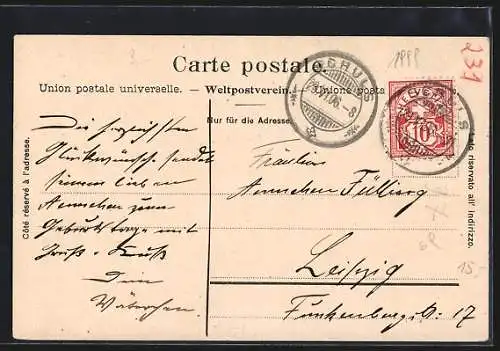 1888
231
Carte postale.
Union postale universelle. — Weltpostverein. — Unione posta
Nur für die Adresse.
Côté réservé à l'adresse.
lato riservato all' indirizzo.
SCHULS
HELVETIA
10
Die herzlichsten
Glückwünsche sendet
seinem lieben
Aennchen zum
Geburtstage mit
Gruß & Kuß
Dein
Väterchen.
Fräulein
Aennchen Fülling
Leipzig
Funkenburgstr. 17
15.-